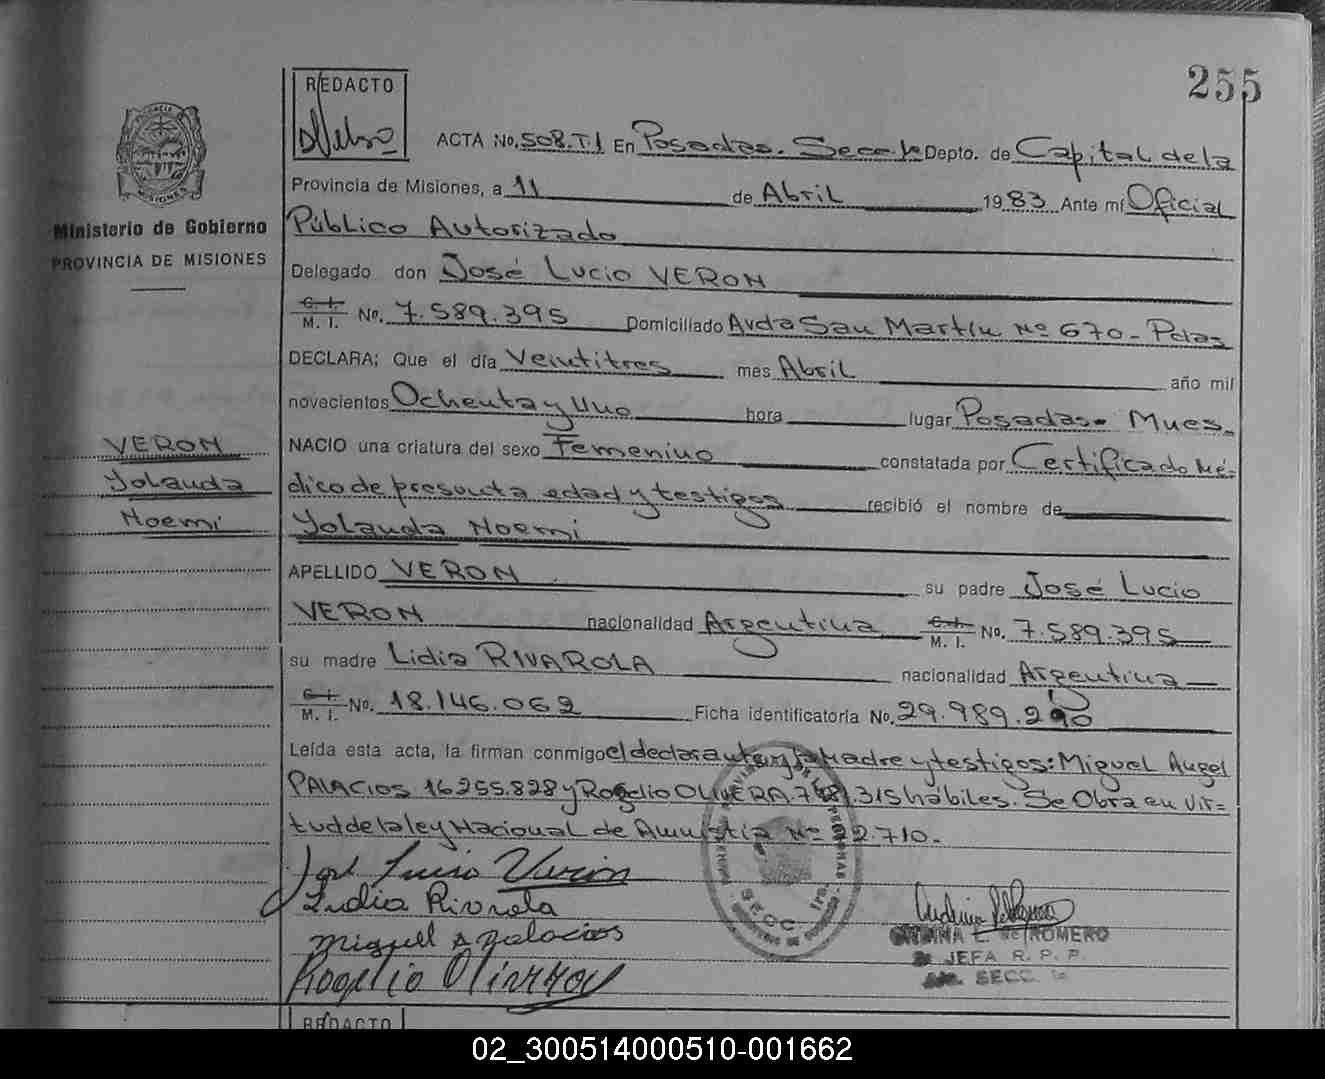 255
REDACTO
ACTA No. 508.T.I En Posadas. Secc 1a Depto. de Capital de la
Provincia de Misiones, a 11 de Abril 1983 Ante mí Oficial
Ministerio de Gobierno
PROVINCIA DE MISIONES
Público Autorizado
Delegado don José Lucio VERON
C. I.
M. I. No. 7.589.395 Domiciliado Avda San Martín Nº 670- Pdas
DECLARA; Que el día Veintitres mes Abril año mil
novecientos Ochenta y Uno hora lugar Posadas- Mnes.
VERON
Yolanda
Noemi
NACIO una criatura del sexo Femenino constatada por Certificado Mé-
dico de presunta edad y testigos recibió el nombre de
Yolanda Noemi
APELLIDO VERON su padre José Lucio
VERON nacionalidad Argentina C. I. M. I. No. 7.589.395
su madre Lidia RIVAROLA nacionalidad Argentina
C. I.
M. I. No. 18.146.062 Ficha identificatoria No. 29.989.290
Leída esta acta, la firman conmigo el declarante y la Madre y testigos: Miguel Angel
PALACIOS 16.255.828 y Rogelio OLIVERA. .315 hábiles. Se Obra en vir=
tud de la ley Nacional de Amnistía Nº 22.710.-
José Lucio Veron
Lidia Rivarola
Miguel A Palacios
Rogelio Olivera
SECC. 1ra.
E. de ROMERO
JEFA R. P. P.
SECC. 1a
REDACTO
02_300514000510-001662